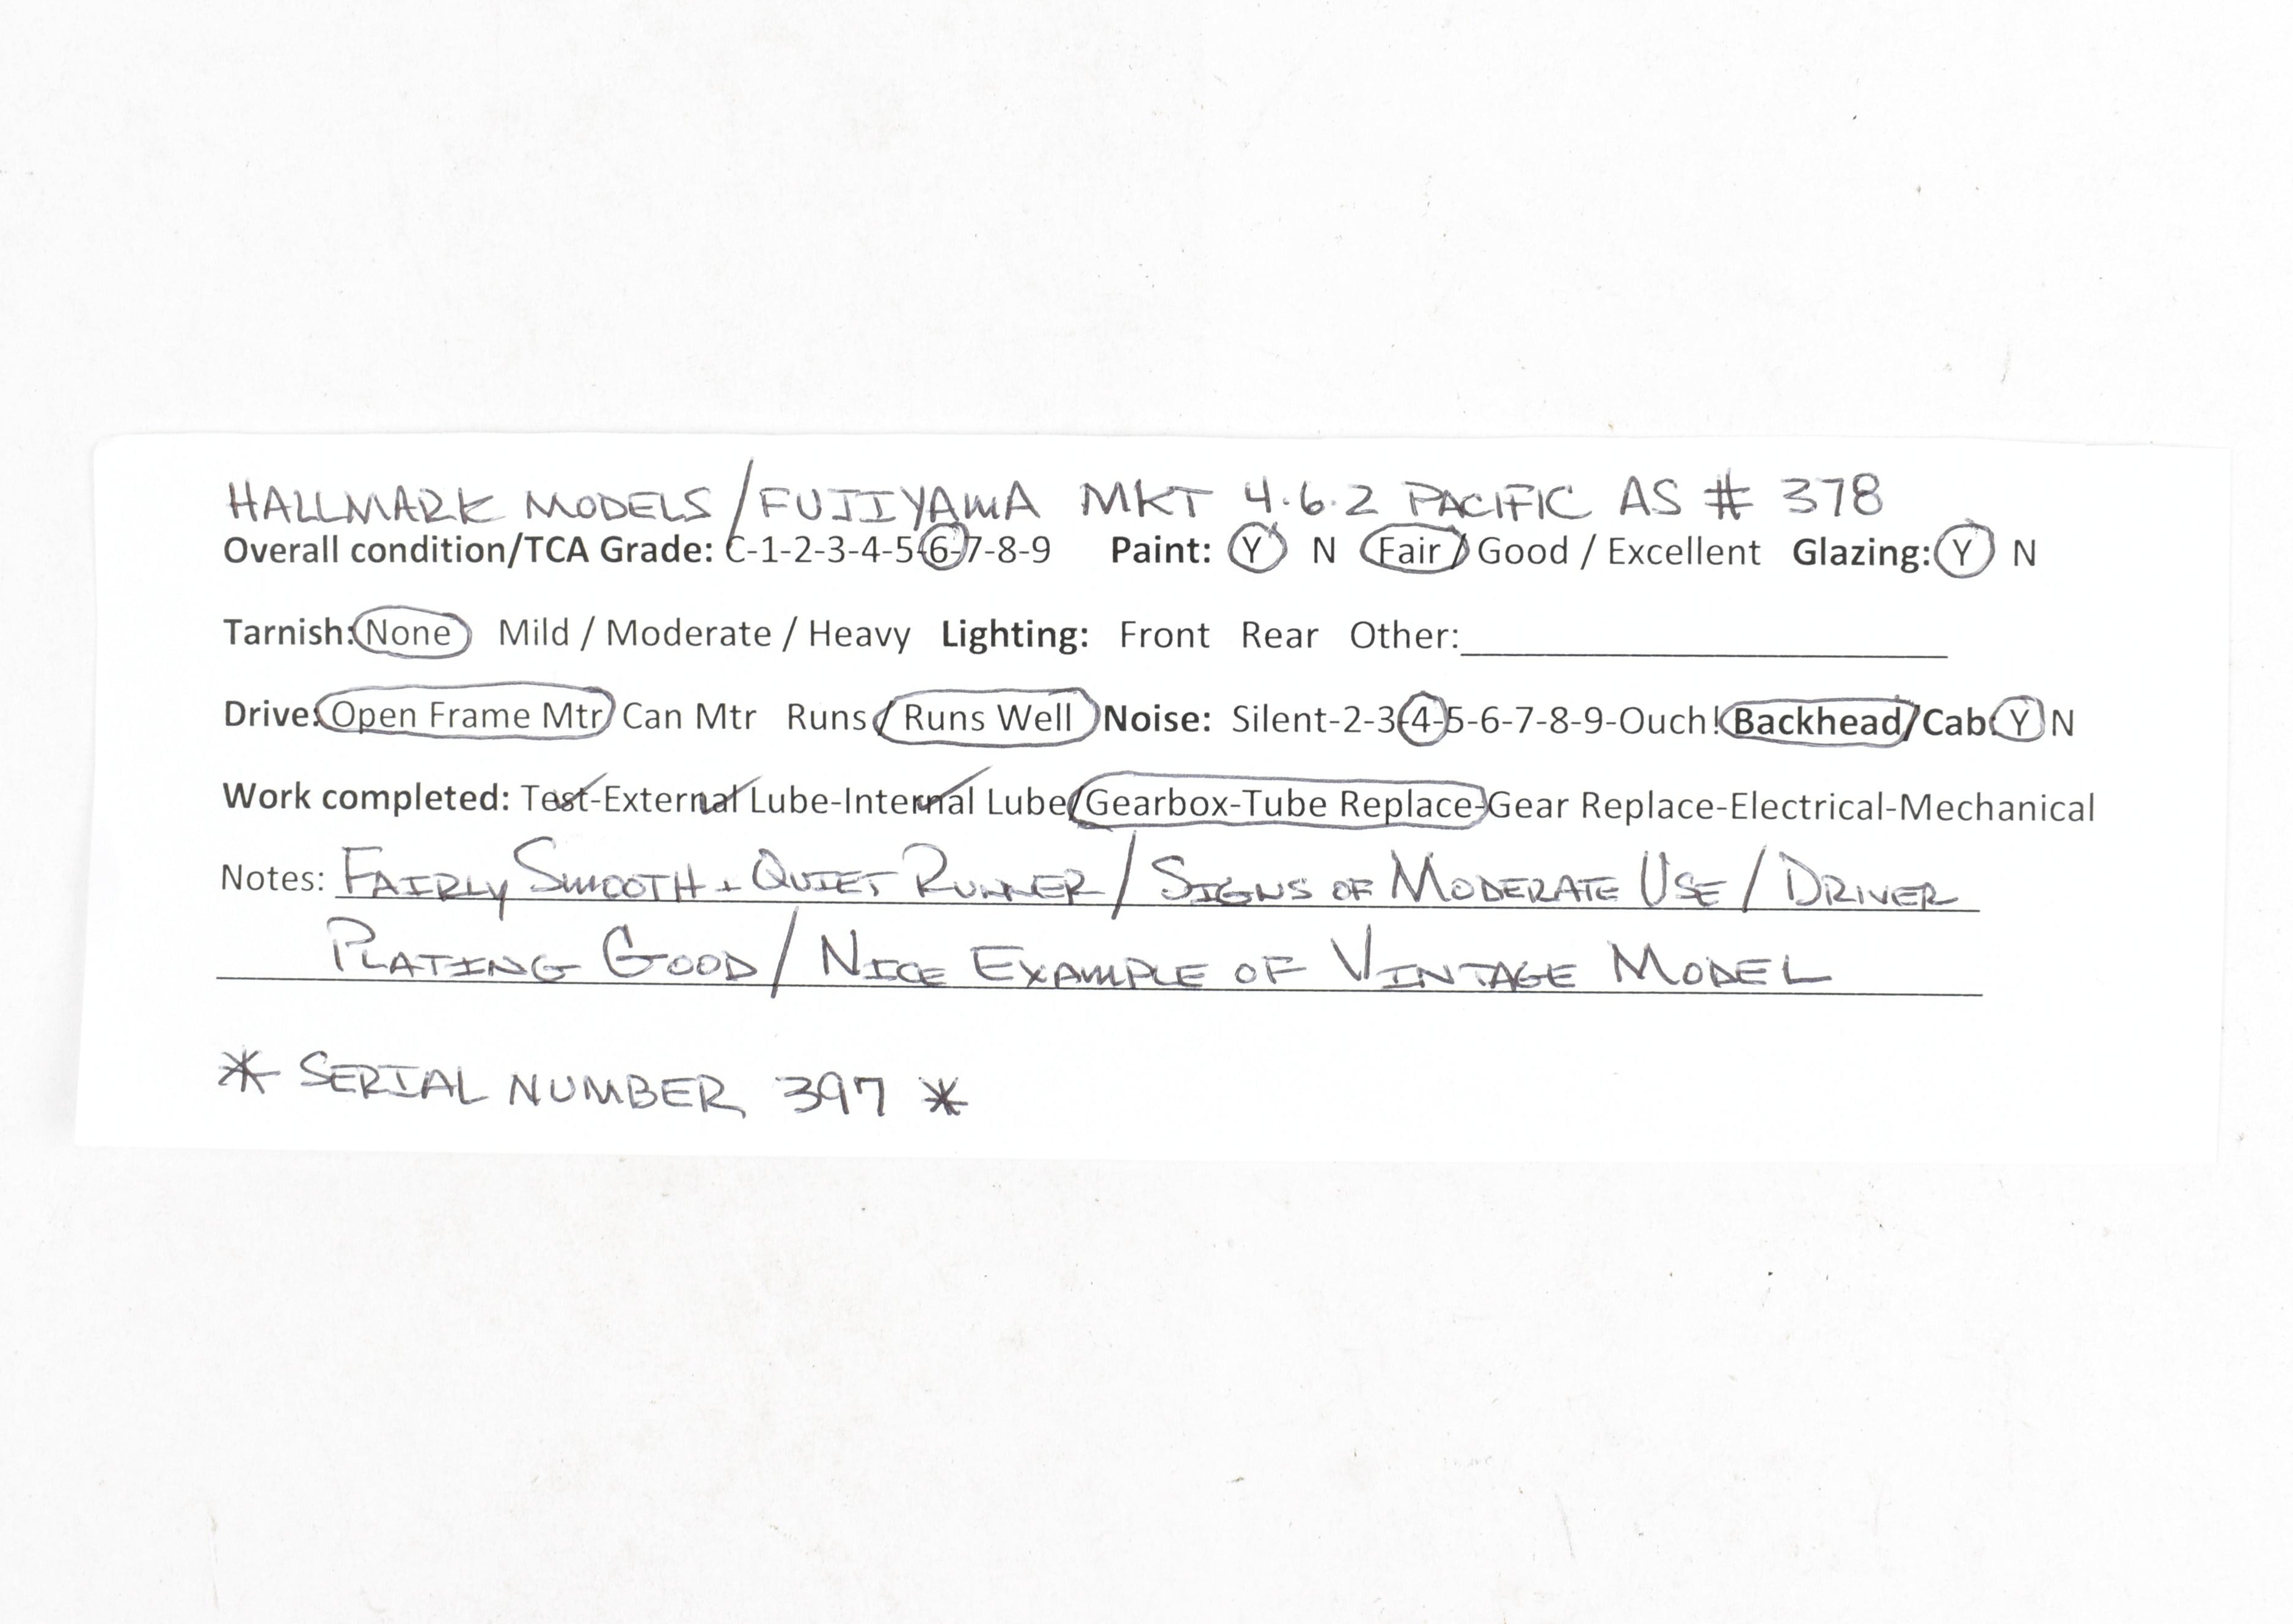 HALLMARK MODELS / FUJIYAMA MKT 4.6.2 PACIFIC AS # 378
Overall condition/TCA Grade: C-1-2-3-4-5-6-7-8-9 Paint: Y N Fair / Good / Excellent Glazing: Y N
Tarnish: None Mild / Moderate / Heavy Lighting: Front Rear Other:
Drive: Open Frame Mtr Can Mtr Runs / Runs Well Noise: Silent-2-3-4-5-6-7-8-9-Ouch! Backhead/Cab: Y N
Work completed: Test-External Lube-Internal Lube/Gearbox-Tube Replace-Gear Replace-Electrical-Mechanical
Notes: FAIRLY SMOOTH + QUIET RUNNER / SIGNS OF MODERATE USE / DRIVER
PLATING GOOD / NICE EXAMPLE OF VINTAGE MODEL
* SERIAL NUMBER 397 *